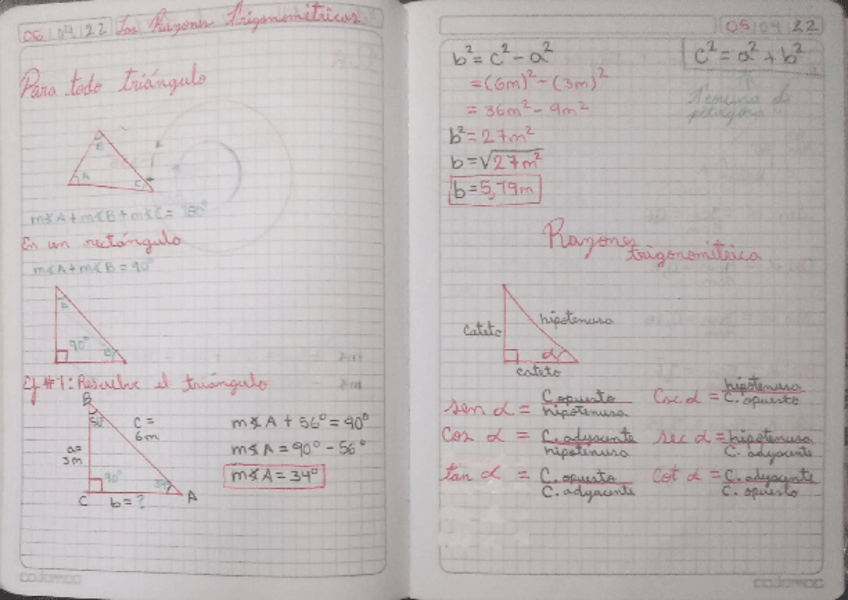 05 04 22 Las Razones Trigonométricas
Para todo triángulo
B
A
C
m∢A + m∢B + m∢C = 180°
En un rectángulo
m∢A + m∢B = 90°
90°
Ej #1: Resuelve el triángulo
B
56°
c =
6m
a=
3m
90°
34°
C
b = ?
A
m∢A + 56° = 90°
m∢A = 90° - 56°
m∢A = 34°
05 04 22
b² = c² - a²
c² = a² + b²
= (6m)² - (3m)²
= 36m² - 9m²
b² = 27m²
b = √27m²
b = 5,79m
Razones
trigonométrica
cateto
hipotenusa
α
cateto
sen α = C. opuesto / hipotenusa
Csc α = hipotenusa / C. opuesto
Cos α = C. adyacente / hipotenusa
sec α = hipotenusa / C. adyacente
tan α = C. opuesto / C. adyacente
Cot α = C. adyacente / C. opuesto